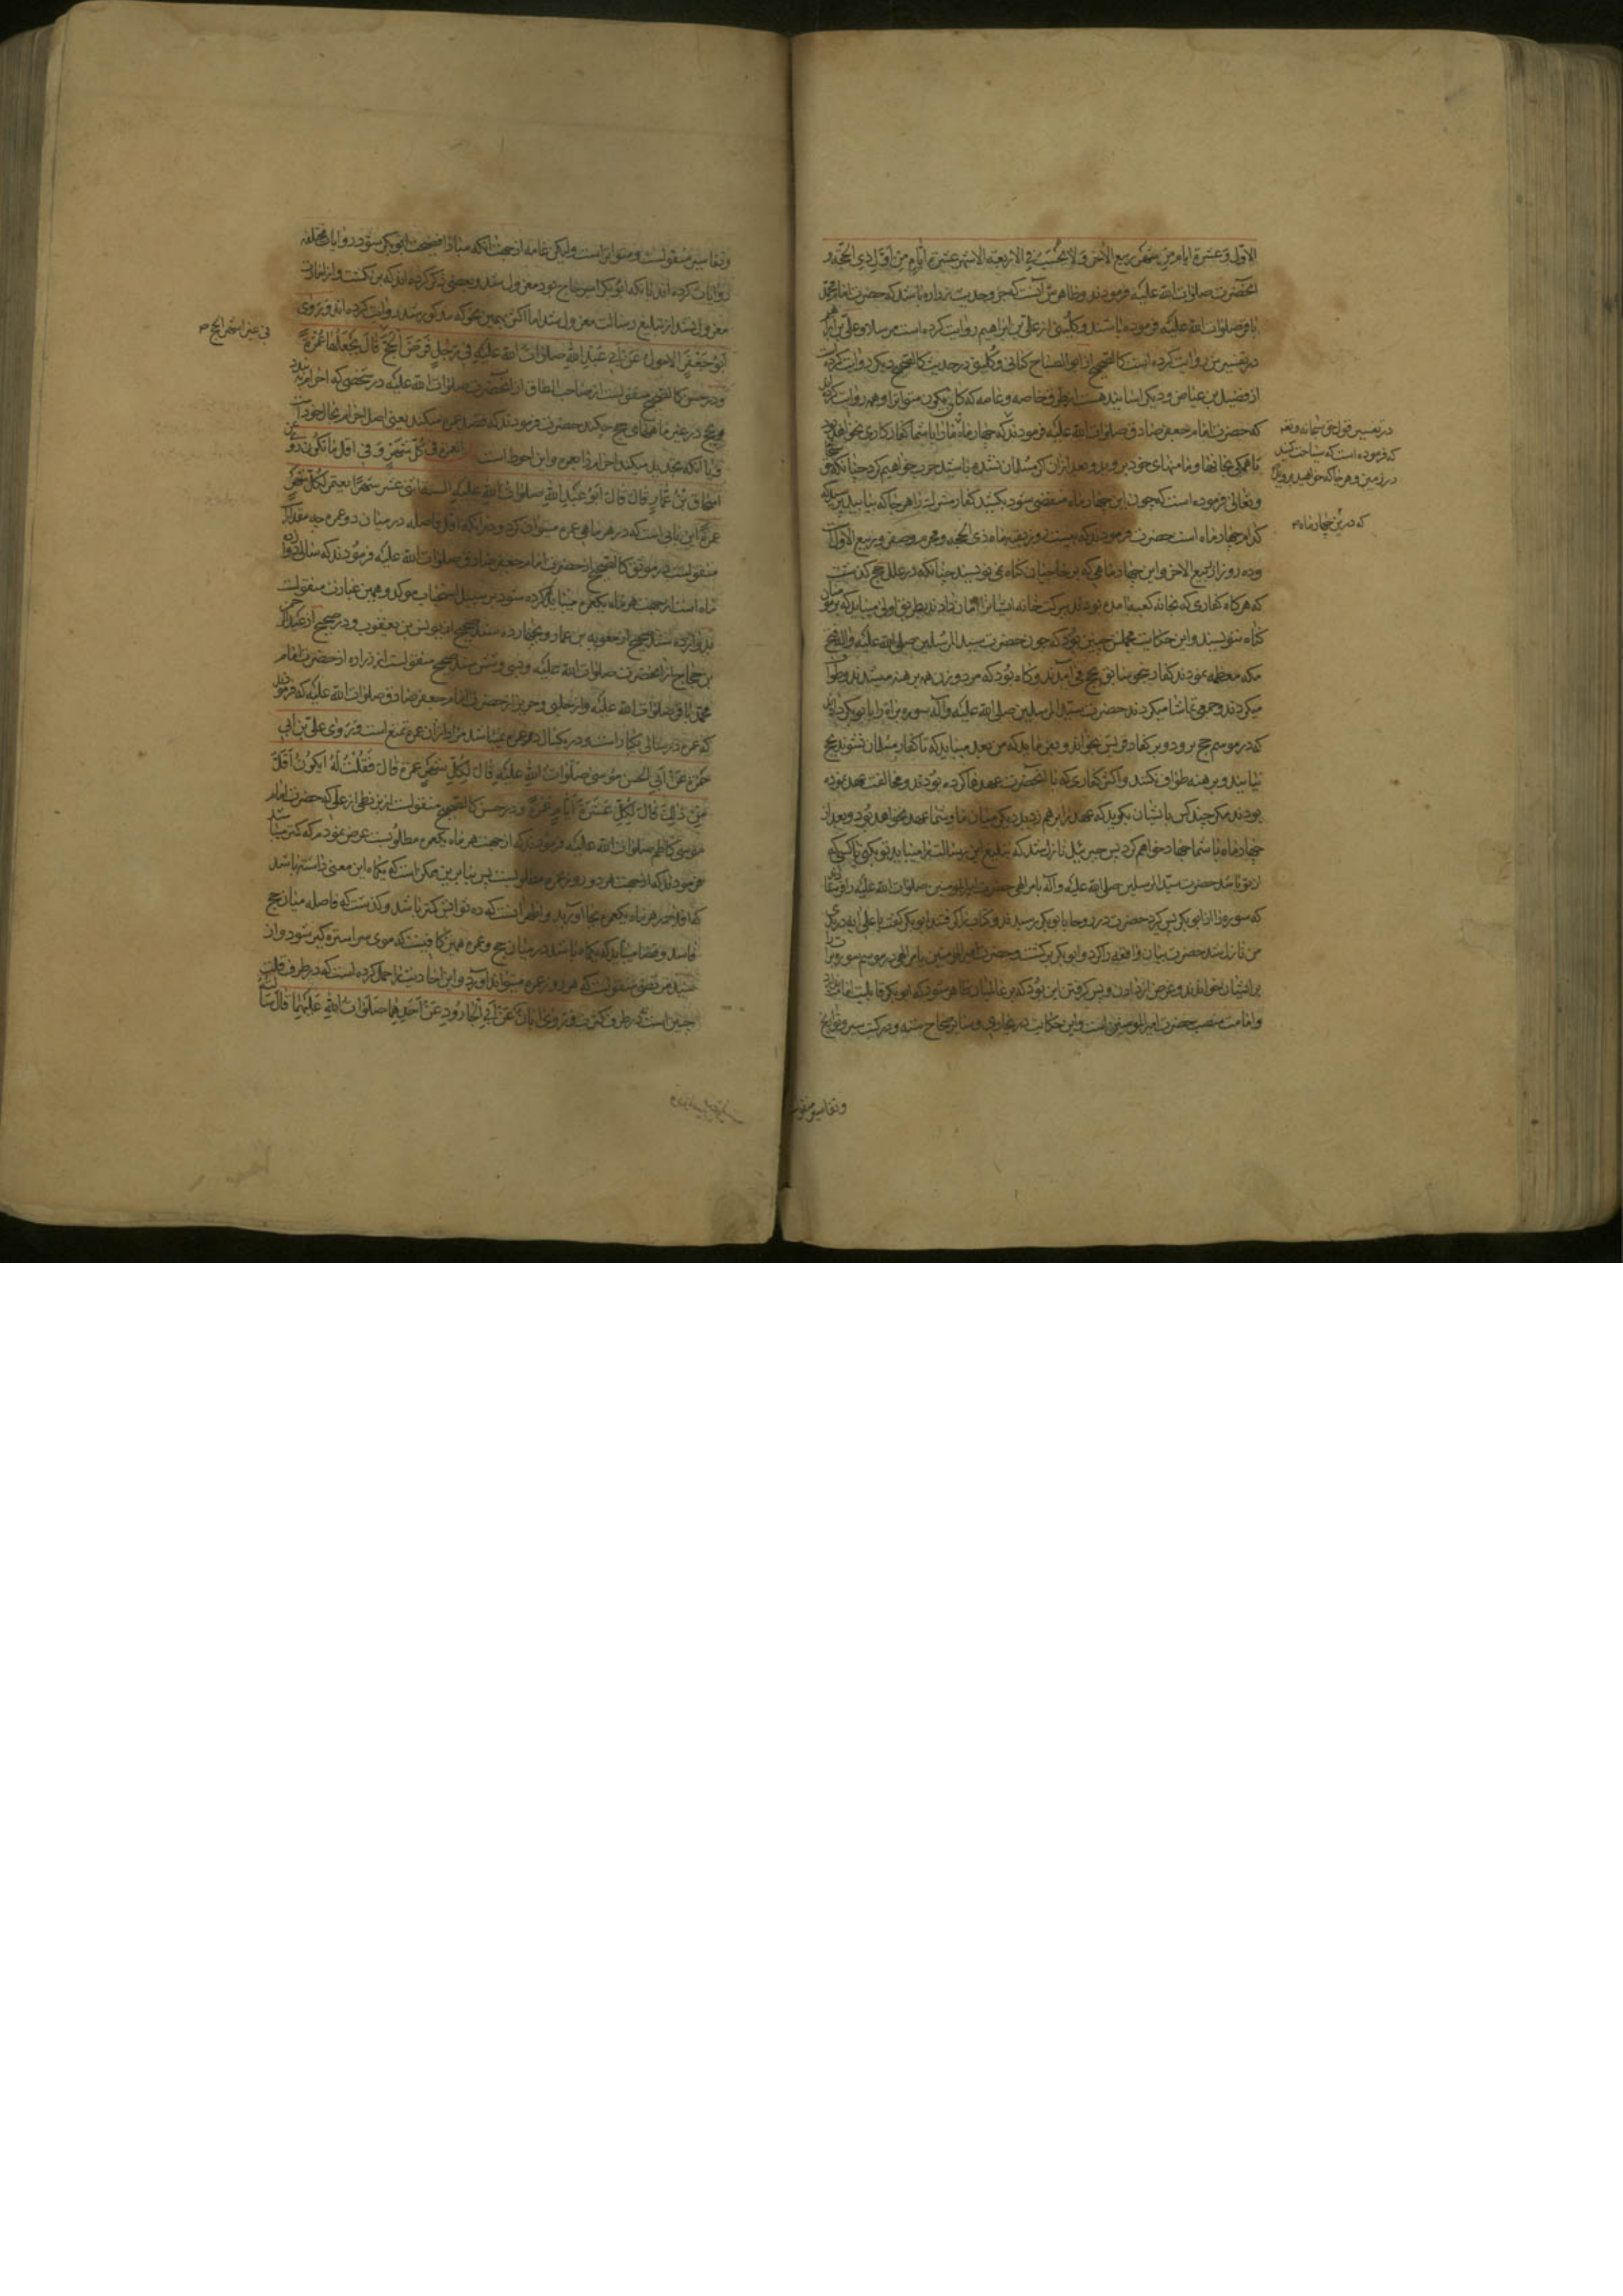 الاوّل و عشرة ايام من شهر ربيع الآخر و لا يحسب في الاربعة الاشهر عشرة ايام من اوّل ذي الحجّة و
آنحضرت صلوات الله عليه فرمودند و ظاهرش آنست كه جزو حديث زراره باشد كه حضرت امام محمّد
باقر صلوات الله عليه فرموده باشند و كليني از علي بن ابراهيم روايت كرده است مرسلا و علي بن ابراهيم
در تفسيرش روايت كرده است كالصّحيح از ابو الصباح كناني و كليني در حديث كالصّحيح ديگر روايت كرده
از فضيل بن عياض و ديگر اسانيد هست از طرق خاصه و عامه كه كاني يكون متواترا و همه روايت كرده‌اند
كه حضرت امام جعفر صادق صلوات الله عليه فرمودند كه چهار ماه ما را با شما كفار كاري نخواهد بود
تا همگي بخانها و مامنهاي خود برويد و بعد از آن اگر مسلمان نشده باشيد حرب خواهيم كرد چنانكه حق سبحانه
و تعالى فرموده است كه چون اين چهار ماه منقضي شود بكشيد كفار مشرك را هر جا كه بيابيد پرسيد كه
كدام چهار ماه است حضرت فرمودند كه بيست روز بقيه ماه ذي الحجه و محرم و صفر و ربيع الاول است
و ده روز از ربيع الآخر و اين چهار ماهي كه بر حاجيان گناه نمي نويسند چنانكه در علل حج گذشت
كه هرگاه كفاري كه بخانه كعبه نامده بودند ببركت خانه ايشانرا امان دادند بطريق اولى ميبايد كه بر مومنان
گناه ننويسند و اين حكايت مجملش چنين بود كه چون حضرت سيد المرسلين صلى الله عليه و آله فتح
مكه معظمه نمودند كفار بنحو سابق بحج مي آمدند و گاه بود كه مرد و زن همه برهنه ميشدند و طواف
ميكردند و جمعي تماشا ميكردند حضرت سيّد المرسلين صلى الله عليه و آله سوره براة را بابو بكر دادند
كه در موسم حج برود و بر كفار قريش بخواند و بفرمايد كه من بعد ميبايد كه تا كفار مسلمان نشوند بحج
نيايند و برهنه طواف نكنند و اكثر كفاري كه با آنحضرت عهدها كرده بودند و مخالفت عهد نموده
بودند مگر چند كس بايشان بگويد كه عهد را بر هم زديد ديگر ميان ما و شما عهد نخواهد بود و بعد از
چهار ماه با شما جهاد خواهم كرد پس جبرئيل نازل شد كه تبليغ اين رسالت را ميبايد تو بكني يا كسي كه
از تو باشد حضرت سيّد المرسلين صلى الله عليه و آله بامر الهي حضرت امير المومنين صلوات الله عليه را فرستادند
كه سوره را از ابو بكر پس گيرد حضرت در روحا بابو بكر رسيدند و كاغذ را گرفتند ابو بكر گفت يا علي آيه در باب
من نازل شد حضرت بيان واقعه را كرد و ابو بكر برگشت و حضرت امير المومنين بامر الهي در موسم سوره براة را
بر ايشان خواندند و غرض از دادن و پس گرفتن اين بود كه بر عالميان ظاهر شود كه ابو بكر قابليت امامت ندارد
و امامت منصب حضرت امير المومنين است و اين حكايت در بخاري و ساير صحاح سته و در كتب سير و تواريخ
در تفسير قول حق سبحانه و تعالى
كه فرموده است كه سياحت كنيد
در زمين و هر جا كه خواهيد برويد
كه در اين چهار ماه
و تفاسير منقولست
و تفاسير منقولست و متواتر است و ليكن عامه از جهت آنكه مبادا فضيحت ابو بكر شود در روايات مختلفه
روايات كرده‌اند با آنكه ابو بكر امير حاج بود معزول شد و بعضي ذكر كرده‌اند كه برنگشت و از امارت
معزول نشد از تبليغ رسالت معزول شد اما اكثر بهمين نحو كه مذكور شد روايت كرده‌اند و روى
ابو جعفر الاحول عن ابي عبد الله صلوات الله عليه في رجل فرض الحجّ قال يجعلها عمرة
و در حسن كالصّحيح منقولست از صاحب الطاق از آنحضرت صلوات الله عليه در شخصي كه احرام بندد
بحج در غير ماههاي حج چكند حضرت فرمودند كه قصد عمره ميكند يعني اصل احرام بحال خود است
و يا آنكه تجديد ميكند احرام را بعمره و اين احوط است العمرة في كلّ شهر و في اقل ما تكون روى
اسحاق بن عمار قال قال ابو عبد الله صلوات الله عليه السنة اثنى عشر شهرا يعتمر لكلّ شهر
عمرة اين بابي است كه در هر ماهي عمره ميتوان كرد و در آنكه اقل فاصله در ميان دو عمره چه مقدار است
منقولست در موثق كالصّحيح از حضرت امام جعفر صادق صلوات الله عليه فرمودند كه سالى دوازده
ماه است از جهت هر ماه يكعمره ميبايد كرده شود بر سبيل استحباب موكد و همين عبارت منقولست
بدوازده سند صحيح از معويه بن عمار و بچهارده سند صحيح از يونس بن يعقوب و در صحيح از عبد الرحمن
بن حجاج از آنحضرت صلوات الله عليه و بسي و شش سند صحيح منقولست از زراره از حضرت امام
محمّد باقر صلوات الله عليه و از حلبي و حريز از حضرت امام جعفر صادق صلوات الله عليه كه فرمودند
كه عمره در سالى يكبار است و در يكسال دو عمره نميباشد مراد از آن عمره تمتع است و روى علي بن ابي
حمزة عن ابي الحسن موسى صلوات الله عليه قال لكلّ شهر عمرة قال فقلت له ايكون اقلّ
من ذلك قال لكلّ عشرة ايّام عمرة و در حسن كالصّحيح منقولست از بزنطي از علي كه حضرت امام
موسى كاظم صلوات الله عليه فرمودند كه از جهت هر ماه يكعمره مطلوبست عرض نمودم كه كمتر ميباشد
فرمودند كه از جهت هر ده روز عمره مطلوبست پس بنابرين ممكن است كه يكماه اين معني داشته باشد
كه اولا هر ماه يكعمره بجا آوريد و اظهر آنست كه ده ثوابش كمتر باشد و گذشت كه فاصله ميان حج
فاسد و قضا ميبايد كه يكماه باشد در ميان حج و عمره همين كافيست كه موى سر استره گير شود و از
سيد مرتضى منقولست كه هر روز عمره ميتواند آورد و اين احاديث را حمل كرده است كه در طرف قلت
چنين است در طرف كثرت و روى ابان عن ابي الجارود عن احدهما صلوات الله عليهما قال سألته
في غير اشهر الحج